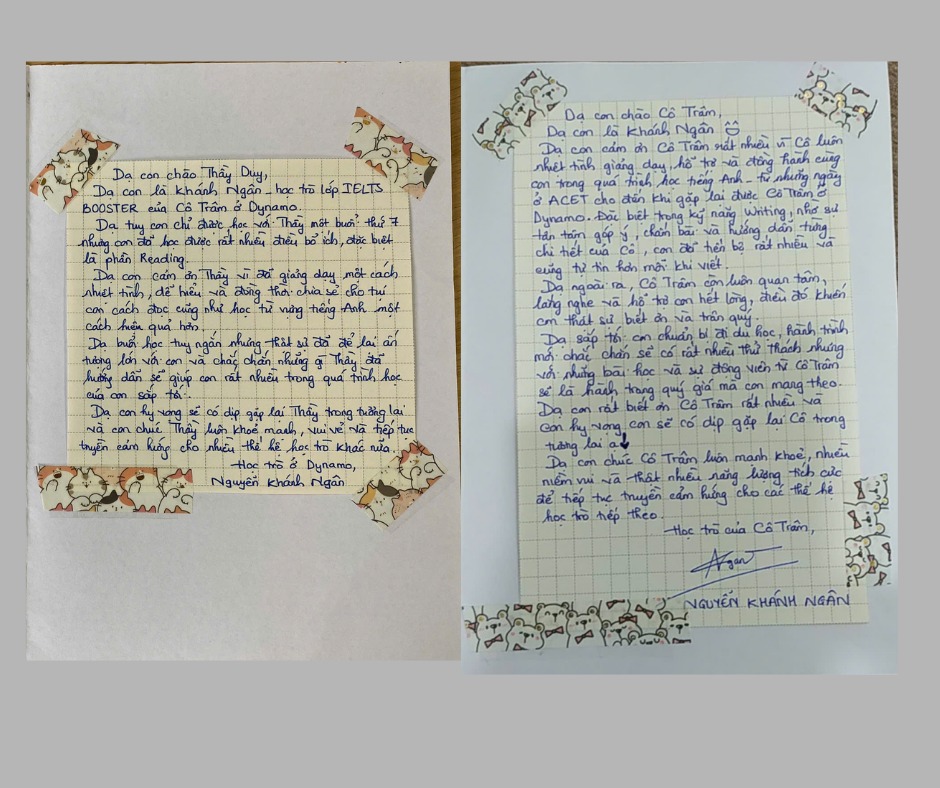 Dạ con chào Thầy Duy,
Dạ con là Khánh Ngân - học trò lớp IELTS
BOOSTER của Cô Trâm ở Dynamo.
Dạ tuy con chỉ được học với Thầy một buổi thứ 7
nhưng con đã học được rất nhiều điều bổ ích, đặc biệt
là phần Reading.
Dạ con cảm ơn Thầy vì đã giảng dạy một cách
nhiệt tình, dễ hiểu và đồng thời chia sẻ cho tụi
con cách đọc cũng như học từ vựng tiếng Anh một
cách hiệu quả hơn.
Dạ buổi học tuy ngắn nhưng thật sự đã để lại ấn
tượng lớn với con và chắc chắn những gì Thầy đã
hướng dẫn sẽ giúp con rất nhiều trong quá trình học
của con sắp tới.
Dạ con hy vọng sẽ có dịp gặp lại Thầy trong tương lai
và con chúc Thầy luôn khoẻ mạnh, vui vẻ và tiếp tục
truyền cảm hứng cho nhiều thế hệ học trò khác nữa.
Học trò ở Dynamo,
Nguyễn Khánh Ngân
Dạ con chào Cô Trâm,
Dạ con là Khánh Ngân
Dạ con cảm ơn Cô Trâm rất nhiều vì Cô luôn
nhiệt tình giảng dạy, hỗ trợ và đồng hành cùng
con trong quá trình học tiếng Anh - từ những ngày
ở ACET cho đến khi gặp lại được Cô Trâm ở
Dynamo. Đặc biệt trong kỹ năng Writing, nhờ sự
tận tâm góp ý, chấm bài và hướng dẫn từng
chi tiết của Cô, con đã tiến bộ rất nhiều và
cũng tự tin hơn mỗi khi viết.
Dạ ngoài ra, Cô Trâm còn luôn quan tâm,
lắng nghe và hỗ trợ con hết lòng, điều đó khiến
con thật sự biết ơn và trân quý.
Dạ sắp tới con chuẩn bị đi du học, hành trình
mới chắc chắn sẽ có rất nhiều thử thách nhưng
với những bài học và sự động viên từ Cô Trâm
sẽ là hành trang quý giá mà con mang theo.
Dạ con rất biết ơn Cô Trâm rất nhiều và
con hy vọng con sẽ có dịp gặp lại Cô trong
tương lai ạ
Dạ con chúc Cô Trâm luôn mạnh khoẻ, nhiều
niềm vui và thật nhiều năng lượng tích cực
để tiếp tục truyền cảm hứng cho các thế hệ
học trò tiếp theo.
Học trò của Cô Trâm,
Ngân
NGUYỄN KHÁNH NGÂN